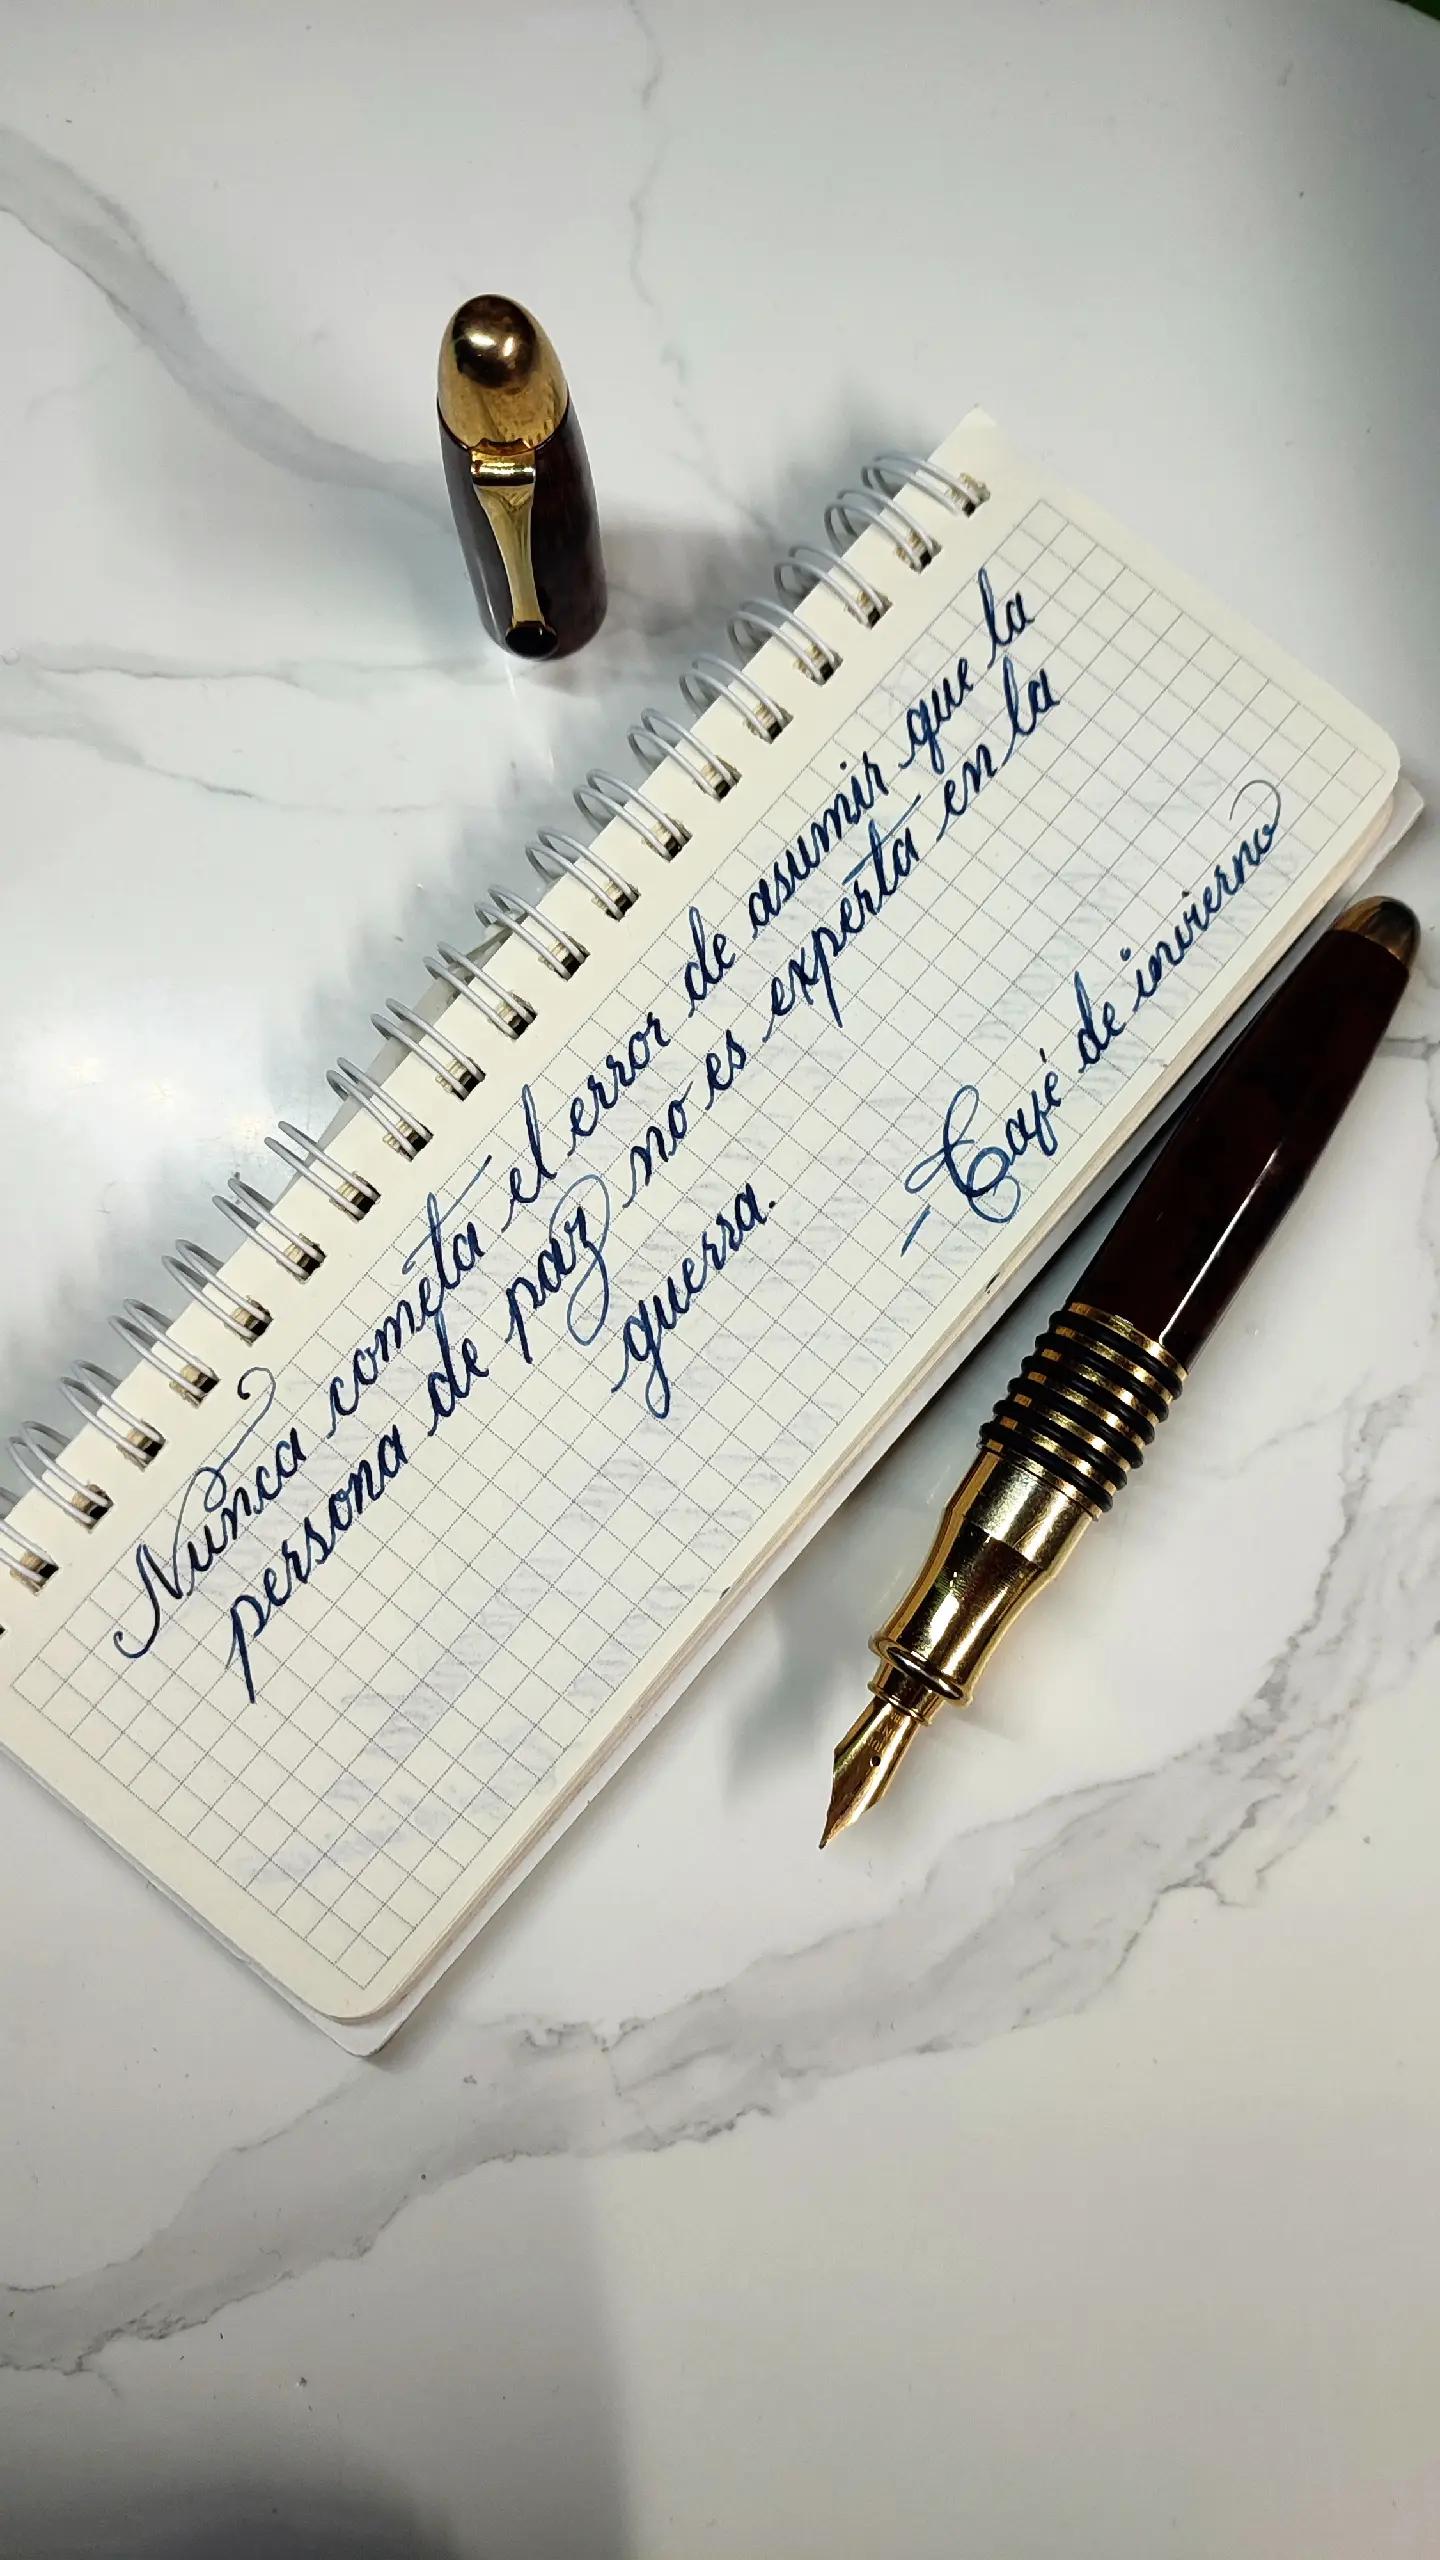 Nunca cometa el error de asumir que la
persona de paz no es experta en la
guerra.
- Café de invierno